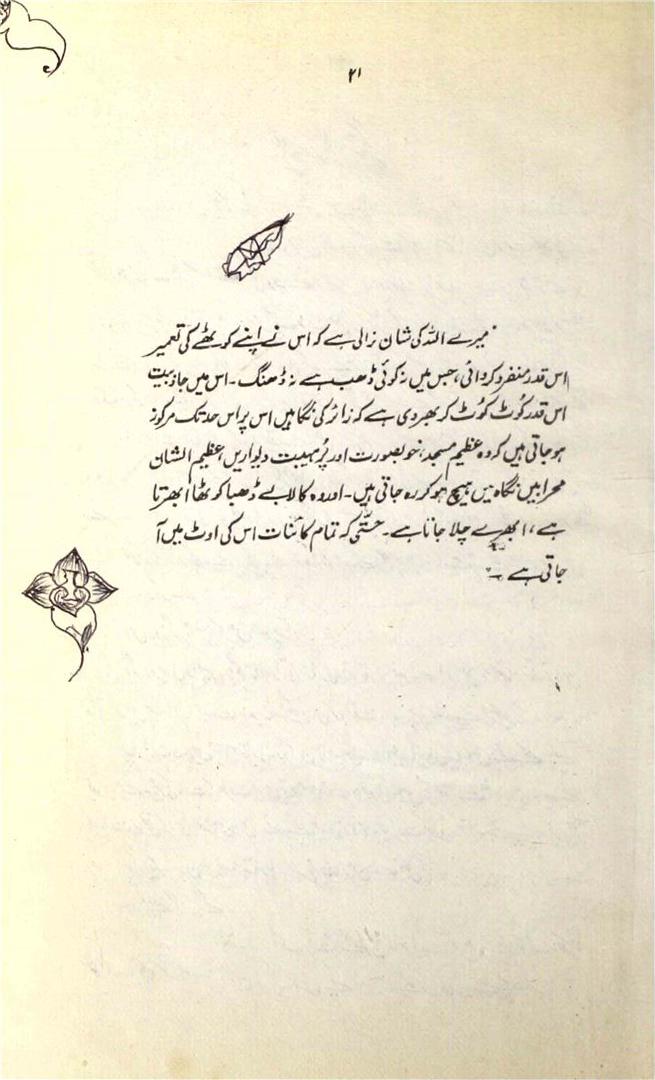 ۴۱
میرے اللہ کی شان نرالی ہے کہ اس نے اپنے کوٹھے کی تعمیر
اس قدر منفرد کروائی، جس میں نہ کوئی ڈھب ہے نہ ڈھنگ۔ اس میں جاذبیت
اس قدر کُوٹ کُوٹ کر بھر دی ہے کہ زائر کی نگاہیں اس پر اس حد تک مرکوز
ہو جاتی ہیں کہ وہ عظیم مسجد، خوبصورت اور پُر ہیبت دیواریں، عظیم الشان
محرابیں نگاہ میں ہیچ ہو کر رہ جاتی ہیں۔ اور وہ کالا بے ڈھبا کوٹھا ابھرتا
ہے، ابھرے چلا جاتا ہے۔ حتّٰی کہ تمام کائنات اس کی اوٹ میں آ
جاتی ہے